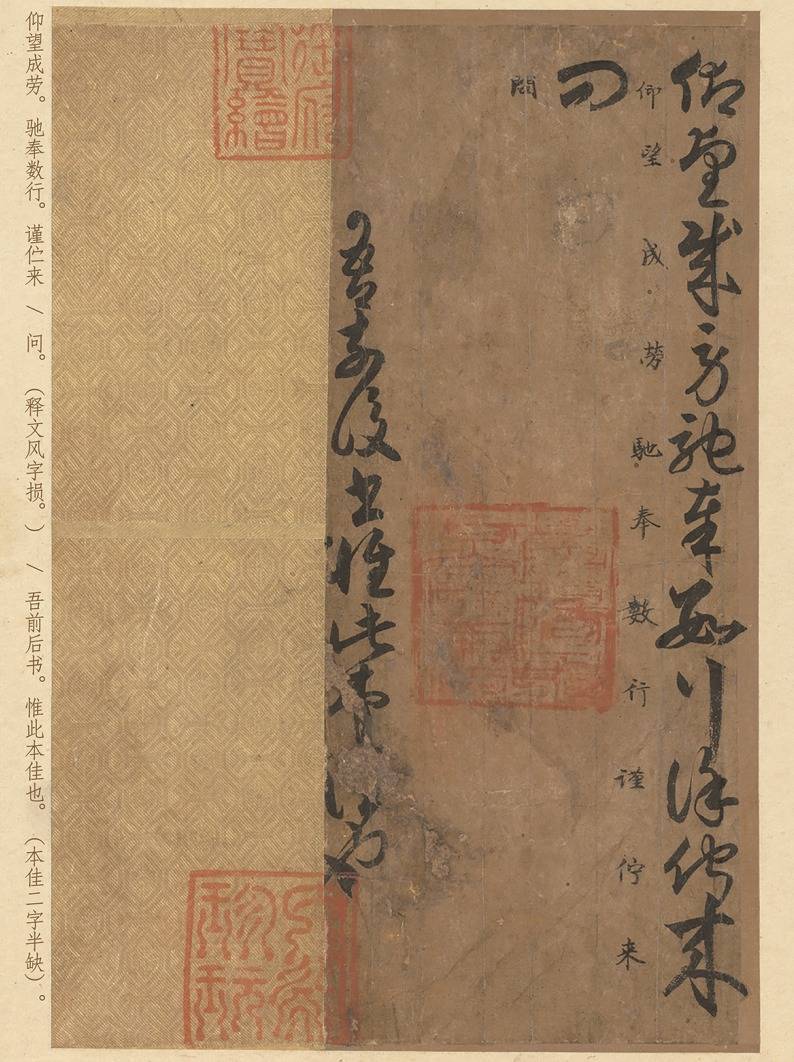 仰望成劳驰奉数行谨伫来
仰望成。劳驰。奉數行谨佇来
问
問
吾前后书惟此本佳也
仰望成劳。驰奉数行。谨伫来 \ 问。（释文风字损。） \ 吾前后书。惟此本佳也。（本佳二字半缺）。